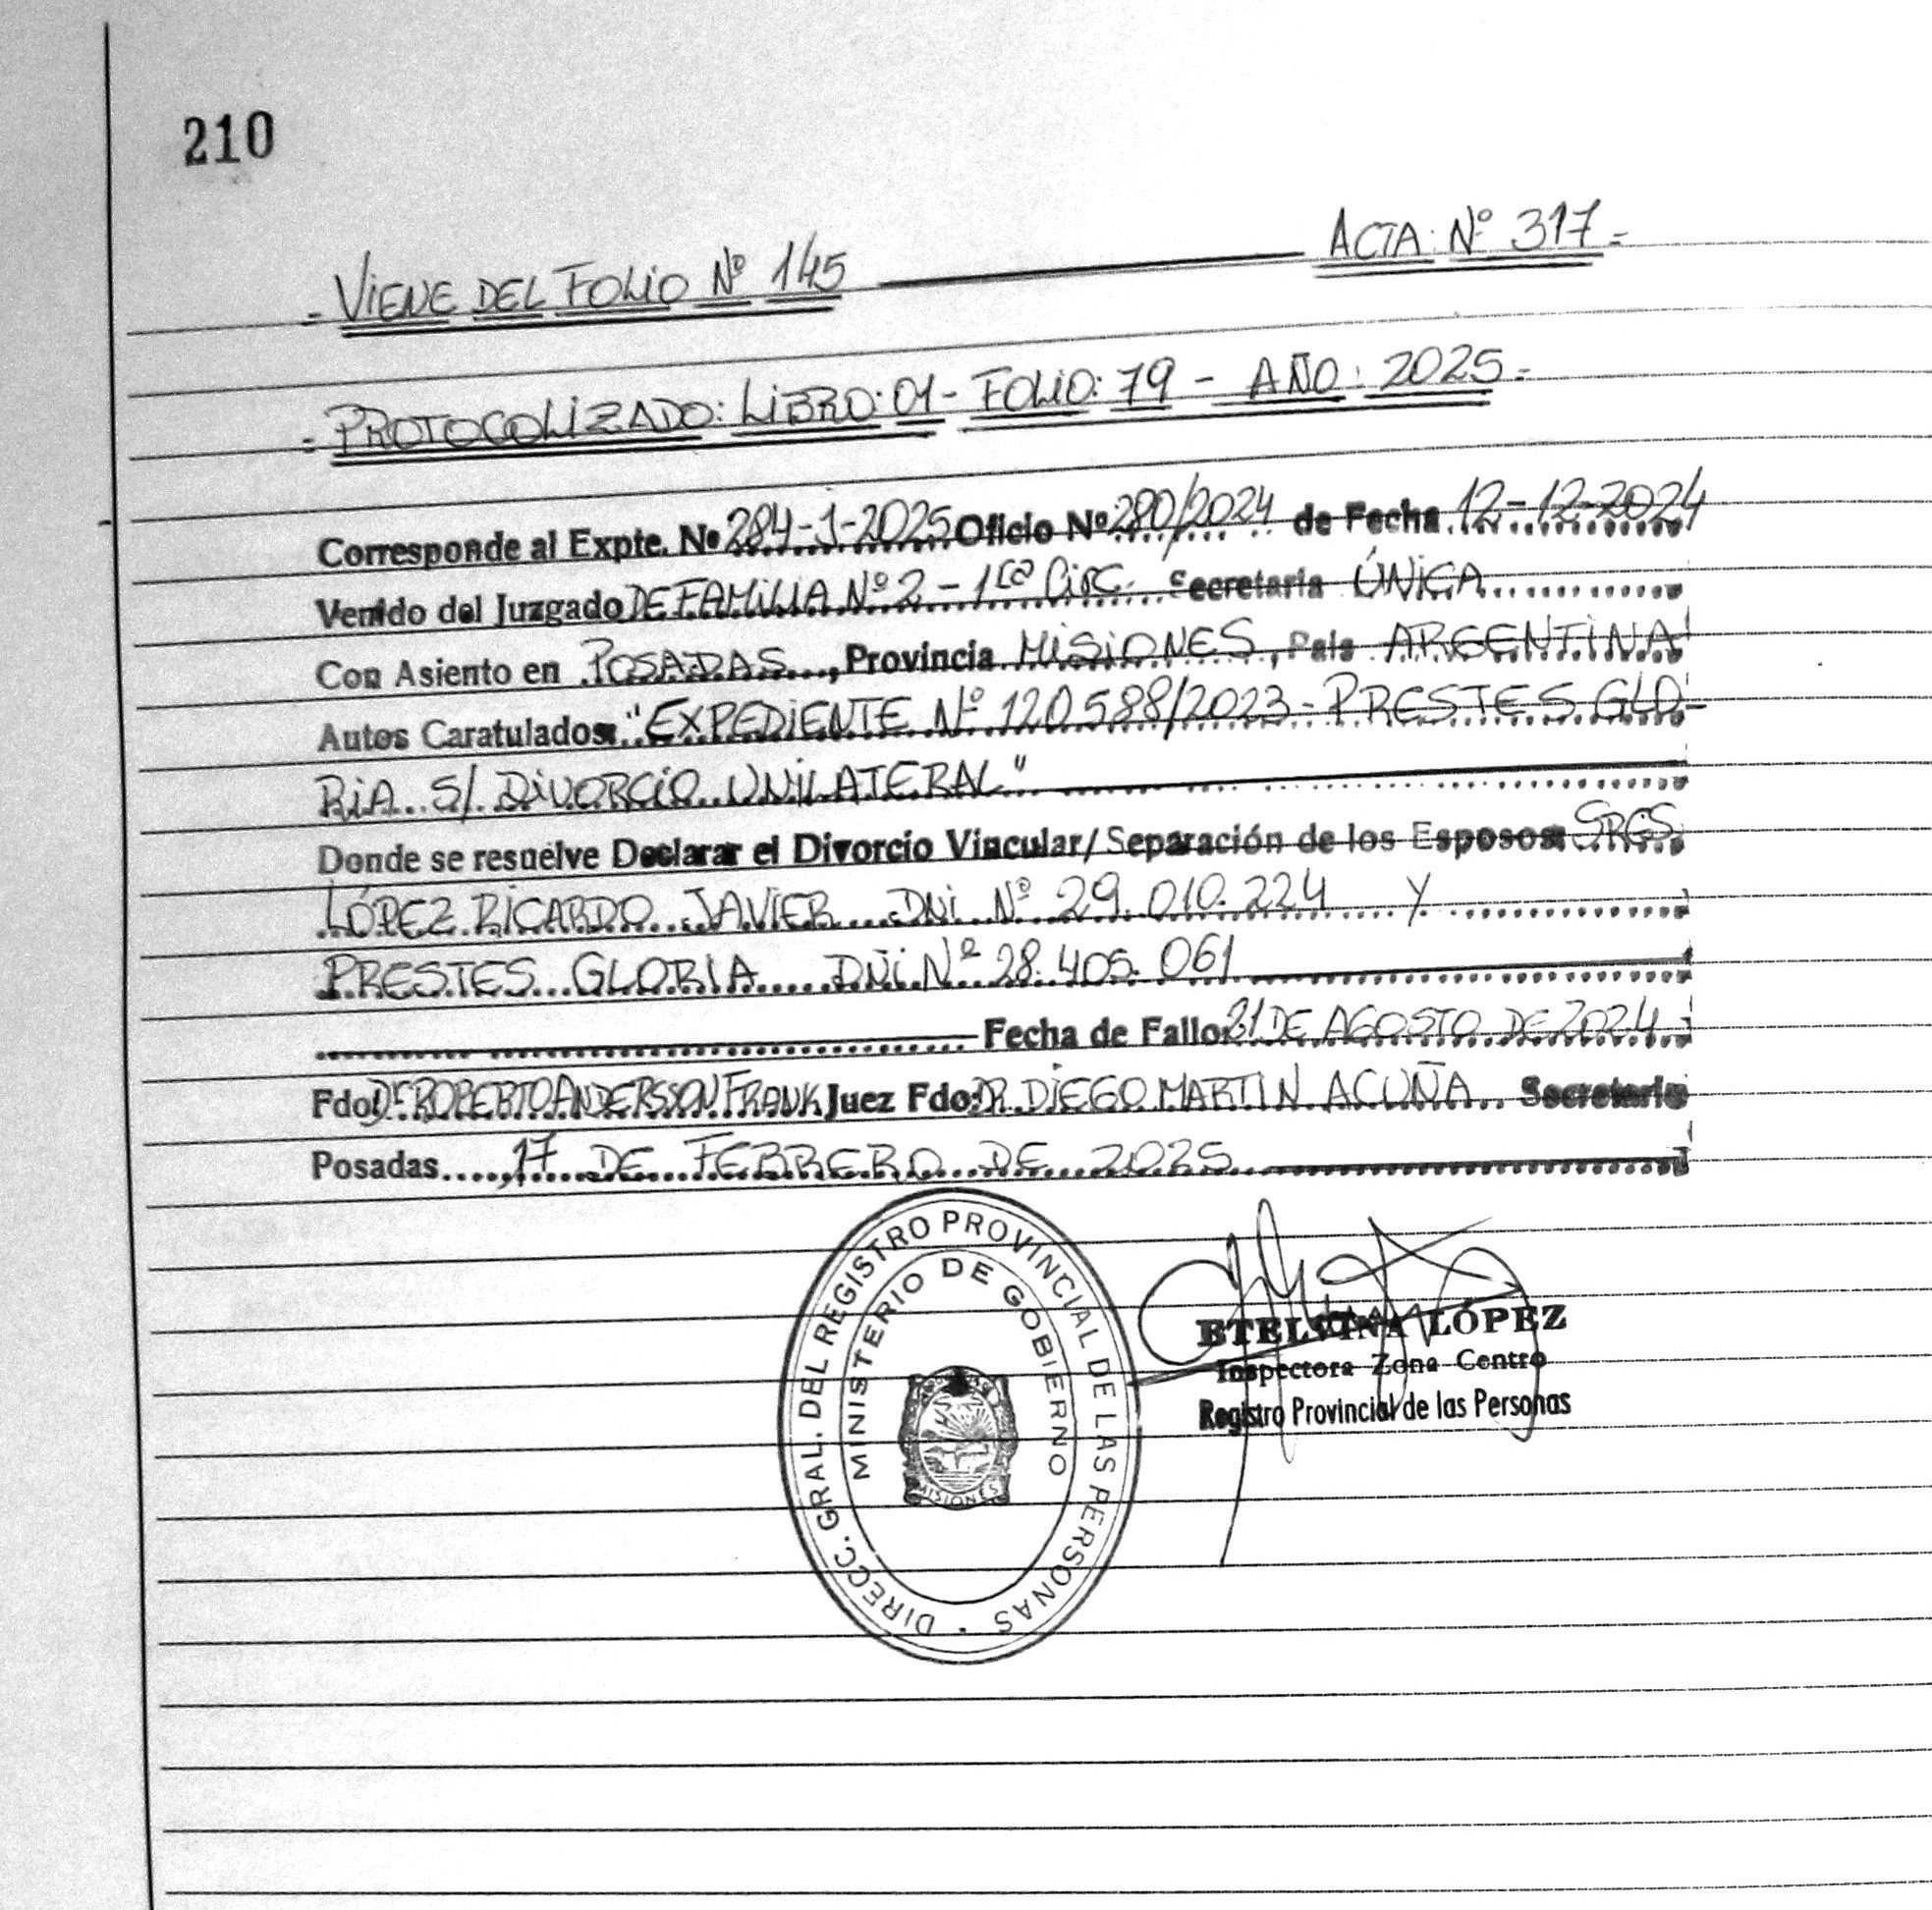 210
- VIENE DEL FOLIO Nº 145 ACTA: Nº 317 -
- PROTOCOLIZADO: LIBRO: 01 - FOLIO: 79 - AÑO: 2025 -
Corresponde al Expte. Nº 284-J-2025 Oficio Nº 280/2024 de Fecha 12-12-2024
Venido del Juzgado DE FAMILIA Nº 2 - 1ra CirC. Secretaria ÚNICA
Con Asiento en POSADAS, Provincia MISIONES, Pais ARGENTINA
Autos Caratulados: "EXPEDIENTE Nº 120588/2023 - PRESTES GLO-
RIA S/ DIVORCIO UNILATERAL"
Donde se resuelve Declarar el Divorcio Vincular/Separación de los Esposos: SRGS.
LÓPEZ RICARDO JAVIER DNI Nº 29.010.224 Y
PRESTES GLORIA DNI Nº 28.405.061
Fecha de Fallo: 21 DE AGOSTO DE 2024
Fdo: ROBERTO ANDERSSON FRANK Juez Fdo: DR. DIEGO MARTIN ACUÑA Secretario
Posadas, 17 DE FEBRERO DE 2025
DIRECC. GRAL. DEL REGISTRO PROVINCIAL DE LAS PERSONAS
MINISTERIO DE GOBIERNO
MISIONES
ETELVINA LÓPEZ
Inspectora Zona Centro
Registro Provincial de las Personas